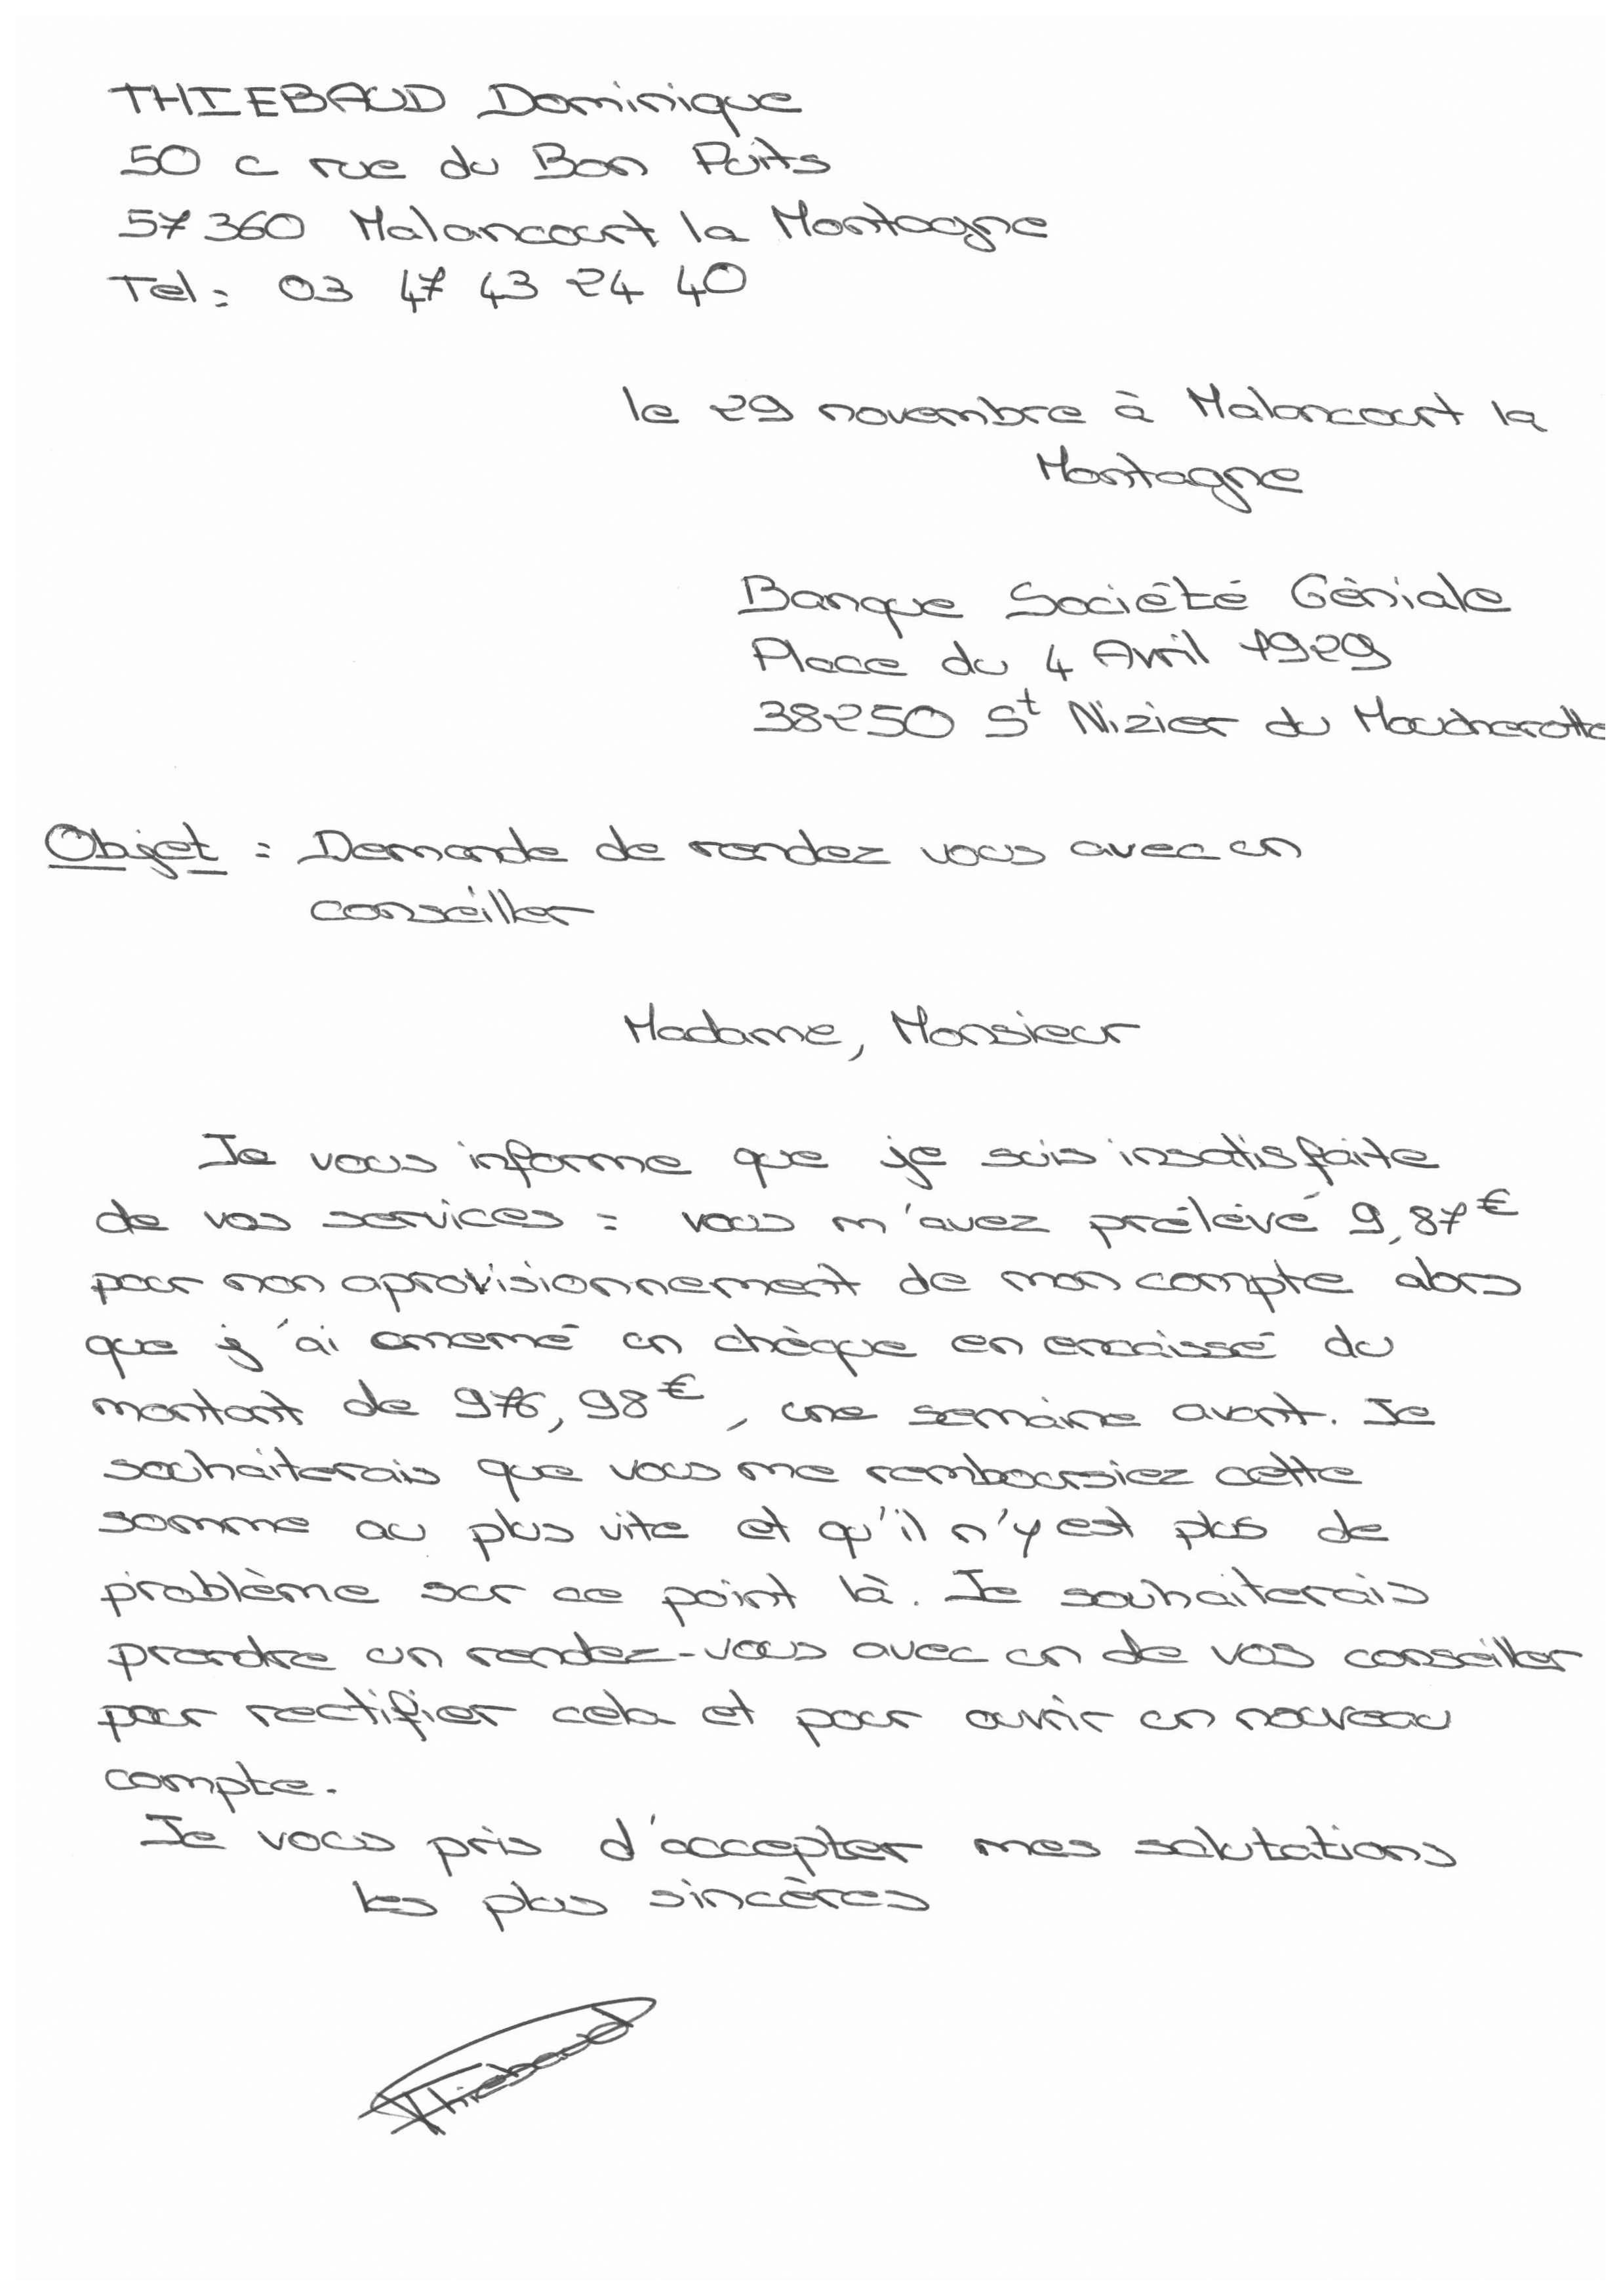 THIEBAUD Dominique
50 c rue du Bon Puits
57360 Malancourt la Montagne
Tel : 03 47 43 24 40
le 29 novembre à Malancourt la
Montagne
Banque Société Géniale
Place du 4 Avril 1929
38250 St Nizier du Moucherotte
Objet : Demande de rendez vous avec un
conseiller
Madame, Monsieur
Je vous informe que je suis insatisfaite
de vos services : vous m'avez prélévé 9,87€
pour non aprovisionnement de mon compte alors
que j'ai amemé un chèque en encaissé du
montant de 976,98€, une semaine avant. Je
souhaiterais que vous me remboursiez cette
somme au plus vite et qu'il n'y est plus de
problème sur ce point là. Je souhaiterais
prendre un rendez-vous avec un de vos conseiller
pour rectifier cela et pour ouvrir un nouveau
compte.
Je vous pris d'accepter mes salutations
les plus sincères
Thiebaud